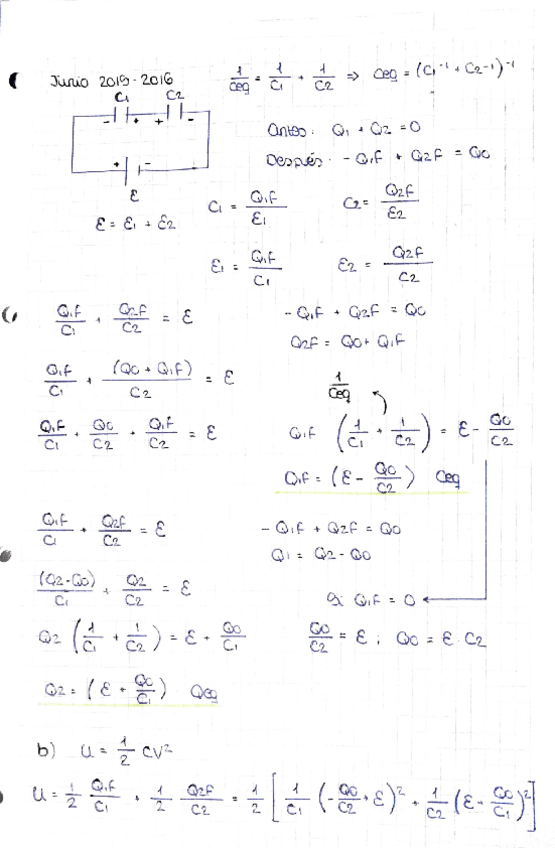 Junio 2015-2016
1/Ceq = 1/C1 + 1/C2 => Ceq = (C1⁻¹ + C2⁻¹)⁻¹
C1 C2
- + + -
+ -
ε
Antes: Q1 + Q2 = 0
Después: - Q1F + Q2F = Q0
ε = ε1 + ε2
C1 = Q1F/ε1 C2 = Q2F/ε2
ε1 = Q1F/C1 ε2 = Q2F/C2
Q1F/C1 + Q2F/C2 = ε
- Q1F + Q2F = Q0
Q2F = Q0 + Q1F
Q1F/C1 + (Q0 + Q1F)/C2 = ε
Q1F/C1 + Q0/C2 + Q1F/C2 = ε
1/Ceq
Q1F (1/C1 + 1/C2) = ε - Q0/C2
Q1F = (ε - Q0/C2) Ceq
Q1F/C1 + Q2F/C2 = ε
- Q1F + Q2F = Q0
Q1 = Q2 - Q0
(Q2-Q0)/C1 + Q2/C2 = ε
Si Q1F = 0
Q2 (1/C1 + 1/C2) = ε + Q0/C1
Q0/C2 = ε ; Q0 = ε · C2
Q2 = (ε + Q0/C1) Qeq
b) U = 1/2 CV²
U = 1/2 Q1F/C1 + 1/2 Q2F/C2 = 1/2 [1/C1 (-Q0/C2 + ε)² + 1/C2 (ε - Q0/C1)²]